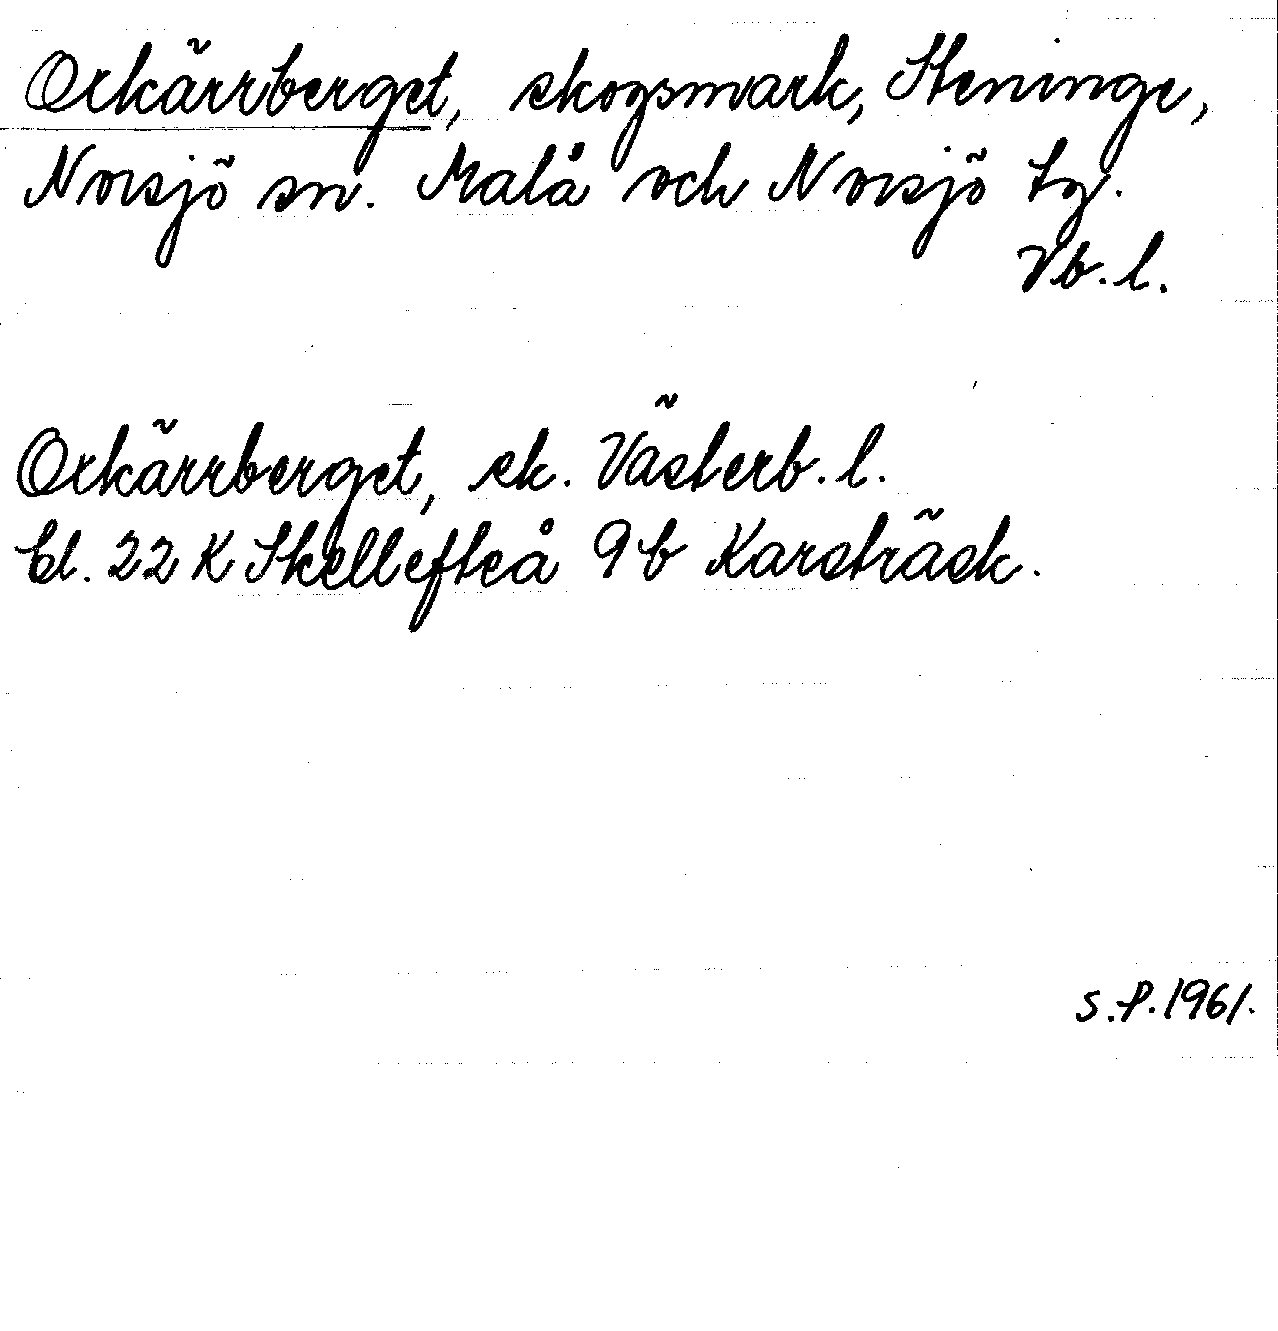 Orkärrberget, skogsmark, Steninge,
Norsjö sn. Malå och Norsjö tg.
Vb.l.
Orkärrberget, sk. Västerb.l.
bl. 22 K Skellefteå 9b Karsträsk.
S.P.1961.